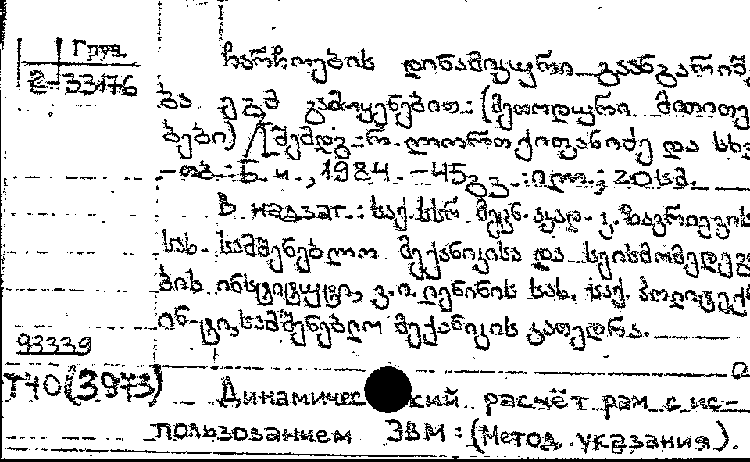 Груз.
2-33176
ჩარჩოების დინამიკური გაანგარიშე
ბა ეგმ გამოყენებით: (მეთოდური მითითე
ბები) / [შემდგ.: რ. ლორთქიფანიძე და სხვ
-თბ.: Б. и., 1984. -45გვ.: ილ.; 20სმ.
В надзаг.: საქ. სსრ მეცნ. აკად. კ. ზავრიევის
სახ. სამშენებლო მექანიკისა და სეისმომედეგ
ბის ინსტიტუტი, ვ. ი. ლენინის სახ. საქ. პოლიტექ
ინ-ტი, სამშენებლო მექანიკის კათედრა.
93339
T40(3973)
Динамический расчёт рам с ис-
пользованием ЭВМ: (Метод. указания).